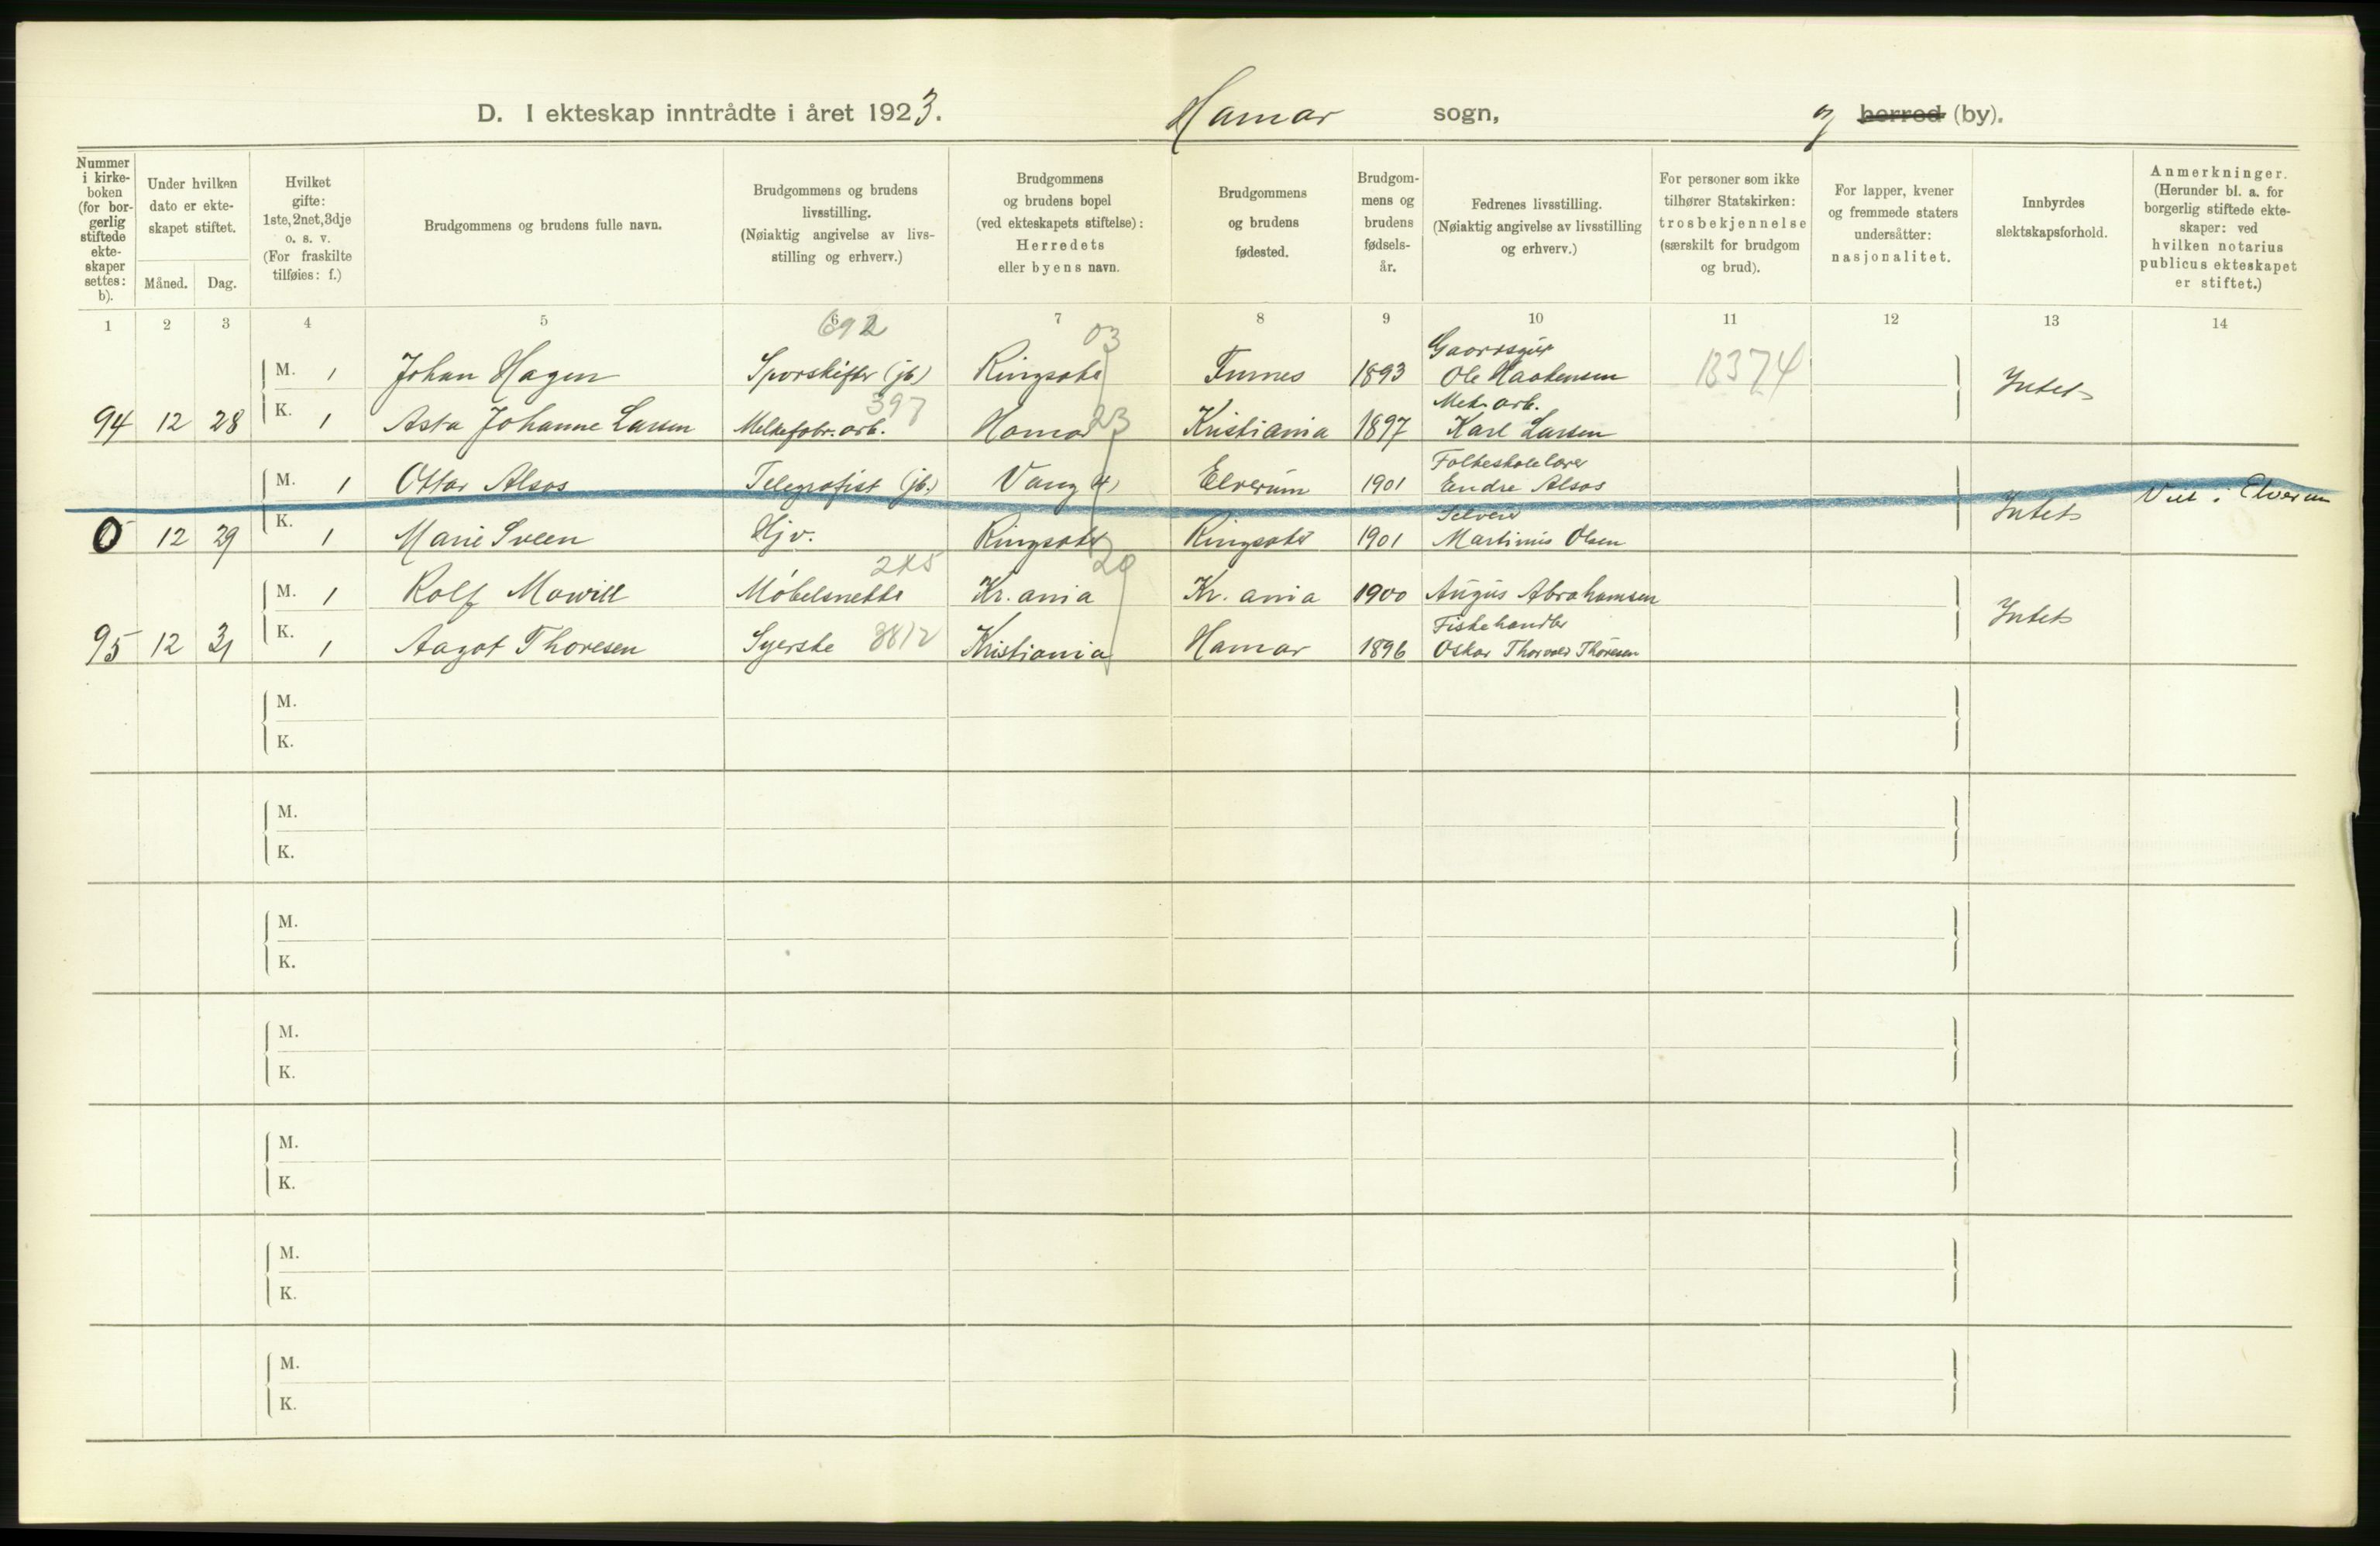 D. I ekteskap inntrådte i året 1923. Hamar sogn, og herred (by).
Nummer i kirkeboken (for borgerlig stiftede ekteskaper settes: b).
Under hvilken dato er ekteskapet stiftet.
Måned. Dag.
Hvilket gifte: 1ste, 2net, 3dje o. s. v. (For fraskilte tilføies: f.)
Brudgommens og brudens fulle navn.
Brudgommens og brudens livsstilling. (Nøiaktig angivelse av livsstilling og erhverv.)
Brudgommens og brudens bopel (ved ekteskapets stiftelse): Herredets eller byens navn.
Brudgommens og brudens fødested.
Brudgommens og brudens fødselsår.
Fedrenes livsstilling. (Nøiaktig angivelse av livsstilling og erhverv.)
For personer som ikke tilhører Statskirken: trosbekjennelse (særskilt for brudgom og brud).
For lapper, kvener og fremmede staters undersåtter: nasjonalitet.
Innbyrdes slektskapsforhold.
Anmerkninger. (Herunder bl. a. for borgerlig stiftede ekteskaper: ved hvilken notarius publicus ekteskapet er stiftet.)
1 2 3 4 5 6 7 8 9 10 11 12 13 14
692 03
M. 1 Johan Hagen Sporskifter (jb) Ringsaker Furnes 1893 Ole Haakensen 13374
397 23 Mek. arb.
94 12 28 K. 1 Asta Johanne Larsen Melkefabr. arb. Hamar Kristiania 1897 Karl Larsen Intet
Folkeskolelærer
M. 1 Ottar Alsos Telegrafist (jb.) Vang H. Elverum 1901 Endre Alsos Viet i Elverum
Selveier
0 12 29 K. 1 Marie Sveen Hjv. Ringsaker Ringsaker 1901 Martinius Olsen Intet
245 20
M. 1 Rolf Mowill Møbelsnekker Kr.ania Kr.ania 1900 August Abrahamsen
Fiskehandler
95 12 31 K. 1 Aagot Thoresen Syerske 3812 Kristiania Hamar 1896 Oskar Thorvald Thoresen Intet
M.
K.
M.
K.
M.
K.
M.
K.
M.
K.
M.
K.
M.
K.